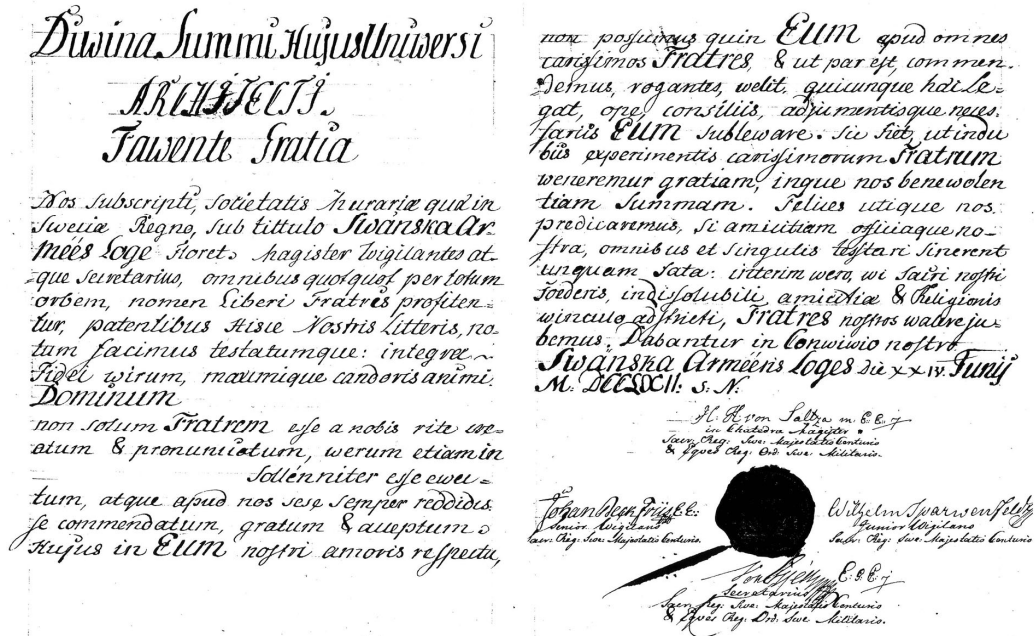 Diwina Summi Hujus Uniwersi
ARCHITECTI.
Fawente Gratia
Nos subscripti, societatis Murariæ quæ in
Sweciæ Regno, sub tittulo Swänska Ar-
meës Loge floret. Magister Wigilantes at-
que secretarius, omnibus quotquot per totum
orbem, nomen Liberi Fratris profiten-
tur, patentibus Hisce Nostris Litteris, no-
tum facimus testatumque: integræ
Fidei wirum, maxumique candoris animi
Dominum
non solum Fratrem esse a nobis rite cre-
atum & pronunciatum, werum etiam in
sollénniter esse ewec-
tum, atque apud nos sese semper reddidis
se commendatum, gratum & acceptum.
Hujus in Eum nostri amoris respectu,
non possumus quin Eum apud omnes
carissimos Fratres, & ut par est, commen-
demus, rogantes, welit, quicunque hæc Le-
gat, ope, consiliis, adjumentisque neces-
sariis Eum subleware. Sic fiet, ut indu
biis experimentis carissimorum Fratrum
weneremur gratiam, inque nos benewolen
tiam summam. Felices utique nos
predicaremus, si amicitiam officiaque no-
stra, omnibus et singulis testari sinerent
unquam fata: interim wero, wi sacri nostri
foederis, indissolubili amicitiæ & Religionis
winculo adstricti, Fratres nostros walere ju-
bemus. Dabantur in Conwiwio nostro
Swänska Arméens Loges Die XXIV. Junij
M. DCCLXII: S. N.
H. H von Saltza m. E. E. j
in Chatedra Magister
Sacr: Reg: Swe: Majestatis Centurio
& Eqves Reg: Ord: Swe Militaris.
Johan Beck Friis E. E:
Senior Wigilans
Sacr: Reg: Swe: Majestatis Centurio.
Wilhelm Sparwenfeldt
Junior Wigilans
Sacr: Reg: Swe: Majestatis Centurio
Von E. G. E. j
Secretarius
Sacr Reg: Swe: Majestatis Centurio
& Eqves Reg: Ord: Swe Militaris.